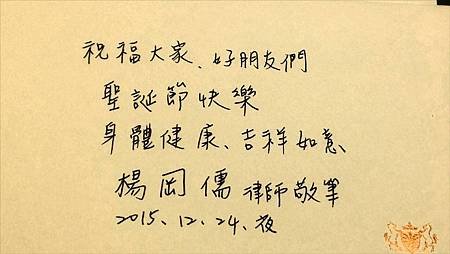 祝福大家、好朋友們
聖誕節快樂
身體健康、吉祥如意、
楊岡儒 律師敬筆
2015、12、24、夜